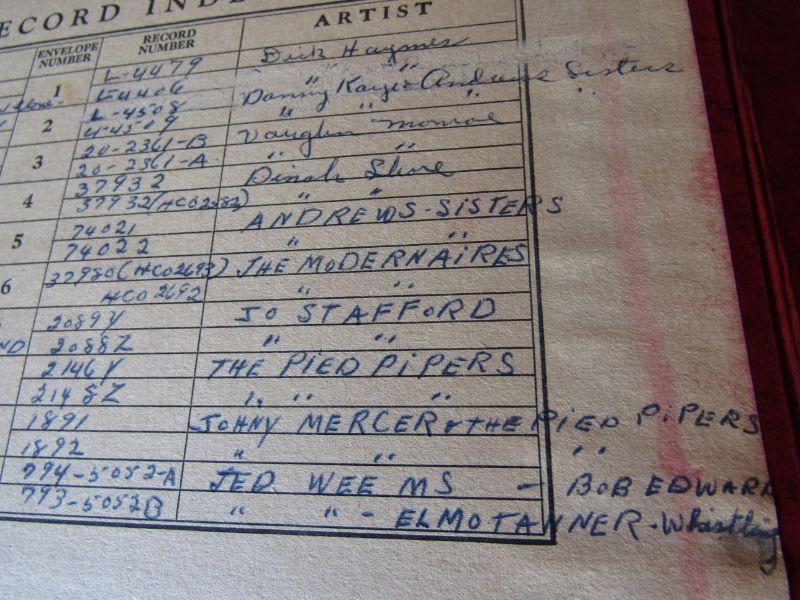 ECORD INDE
ENVELOPE NUMBER RECORD NUMBER ARTIST
1 L-4479 Dick Haymes
L-4406 " "
2 L-4508 Danny Kaye & Andrews Sisters
L-4509 " " " "
3 20-2361-B Vaughn Monroe
20-2361-A " "
4 37932 Dinah Shore
37932 (HCO2282) " "
5 74021 ANDREWS-SISTERS
74022 " "
6 37980 (HCO2693) THE MODERNAIRES
HCO 2692 " "
2089Y JO STAFFORD
ND 2088Z " "
2146Y THE PIED PIPERS
2148Z " " "
1891 JOHNY MERCER & THE PIED PIPERS
1892 " " " "
794-5052-A TED WEEMS - BOB EDWARDS
793-5052B " " - ELMO TANNER-Whistling